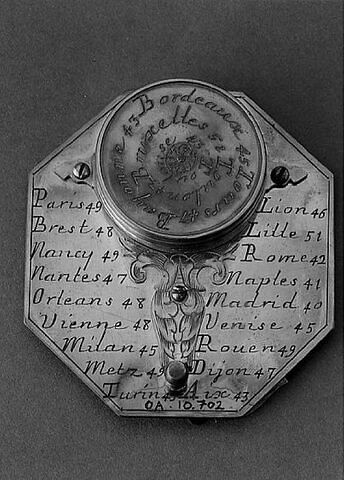 Bordeaux 45 Tours 47 Bayonne 43
Bruxelles 51 Toulon 42
Paris 49
Brest 48
Nancy 49
Nantes 47
Orleans 48
Vienne 48
Milan 45
Metz 49
Turin
Lion 46
Lille 51
Rome 42
Naples 41
Madrid 40
Venise 45
Rouen 49
Dijon 47
Aix 43
OA. 10.702